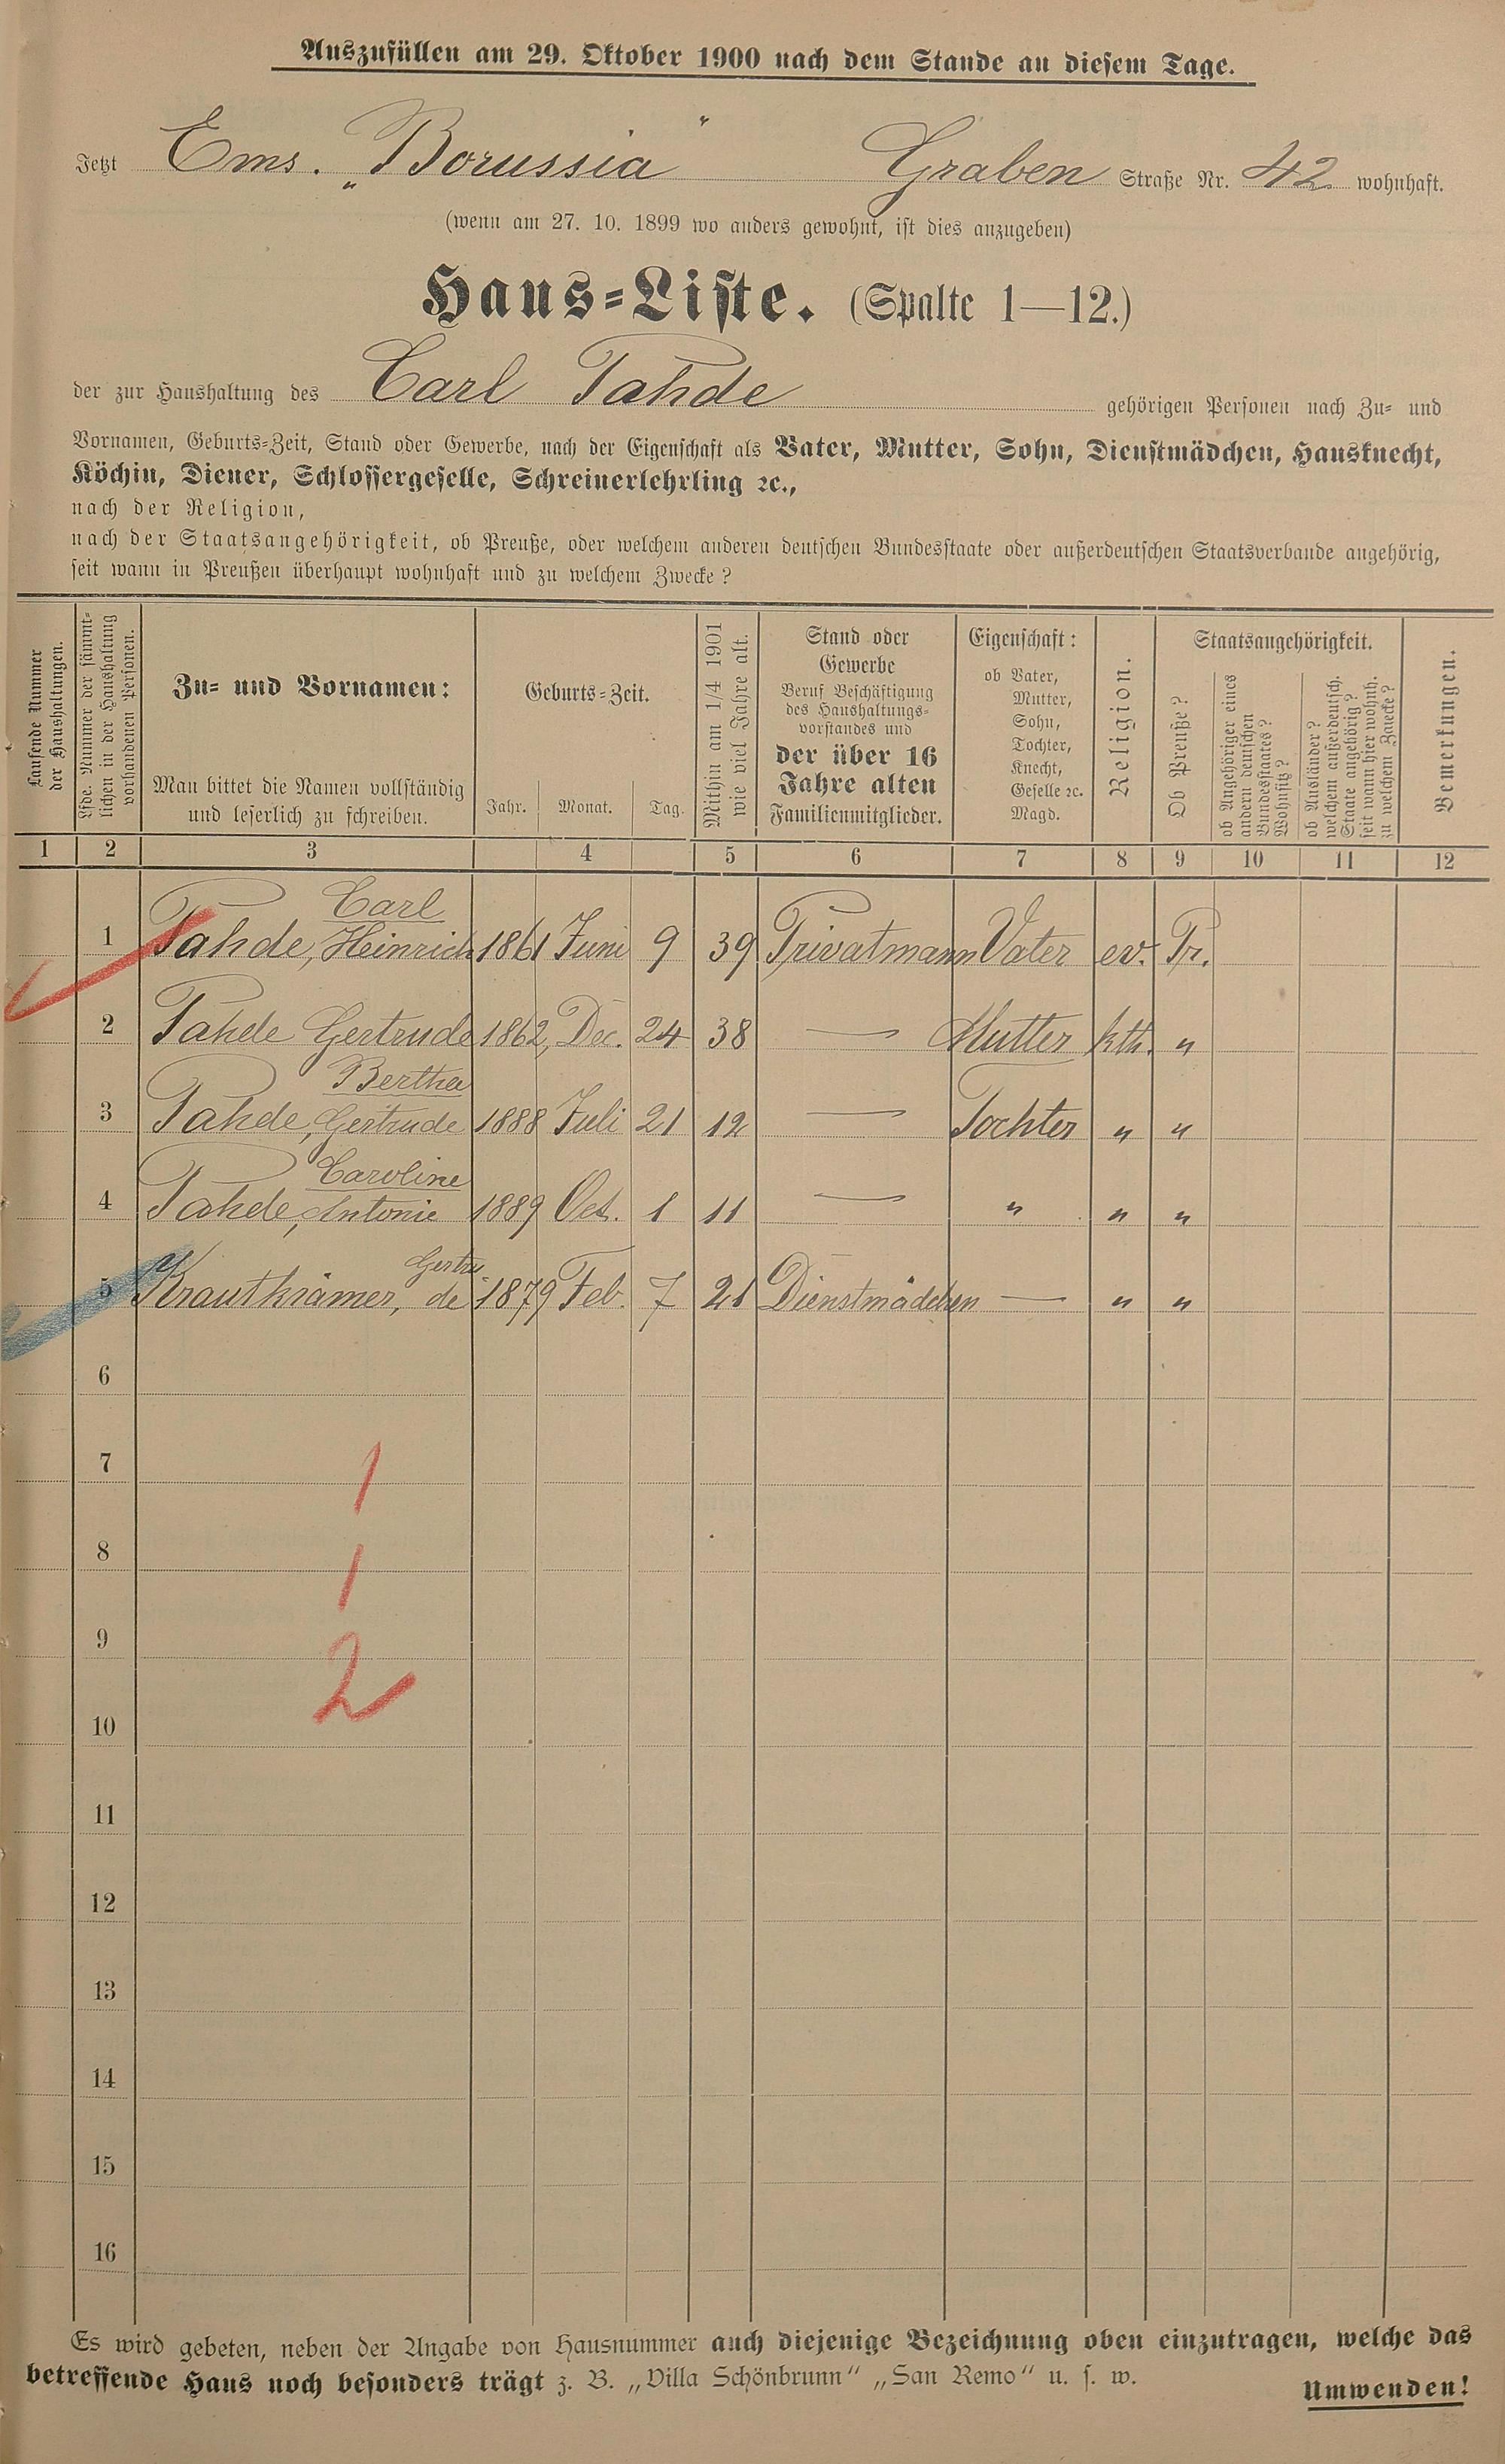 Auszufüllen am 29. Oktober 1900 nach dem Stande an diesem Tage.
Jetzt Ems. „Borussia" Graben Straße Nr. 42 wohnhaft.
(wenn am 27. 10. 1899 wo anders gewohnt, ist dies anzugeben)
Haus-Liste. (Spalte 1—12.)
der zur Haushaltung des Carl Pahde gehörigen Personen nach Zu- und
Vornamen, Geburts-Zeit, Stand oder Gewerbe, nach der Eigenschaft als Vater, Mutter, Sohn, Dienstmädchen, Hausknecht,
Köchin, Diener, Schlossergeselle, Schreinerlehrling ꝛc.,
nach der Religion,
nach der Staatsangehörigkeit, ob Preuße, oder welchem anderen deutschen Bundesstaate oder außerdeutschen Staatsverbande angehörig,
seit wann in Preußen überhaupt wohnhaft und zu welchem Zwecke?
Laufende Nummer
der Haushaltungen.
Lfde. Nummer der sämmt-
lichen in der Haushaltung
vorhandenen Personen.
Zu- und Vornamen:
Man bittet die Namen vollständig
und leserlich zu schreiben.
Geburts-Zeit.
Jahr. Monat. Tag.
Mithin am 1/4 1901
wie viel Jahre alt.
Stand oder
Gewerbe
Beruf Beschäftigung
des Haushaltungs-
vorstandes und
der über 16
Jahre alten
Familienmitglieder.
Eigenschaft:
ob Vater,
Mutter,
Sohn,
Tochter,
Knecht,
Geselle ꝛc.
Magd.
Religion.
Staatsangehörigkeit.
Ob Preuße?
ob Angehöriger eines
andern deutschen
Bundesstaates?
Wohnsitz?
ob Ausländer?
welchem außerdeutsch.
Staate angehörig?
seit wann hier wohnh.
zu welchem Zwecke?
Bemerkungen.
1 2 3 4 5 6 7 8 9 10 11 12
Carl
1 Pahde, Heinrich 1861 Juni 9 39 Privatmann Vater ev. Pr.
2 Pahde Gertrude 1862, Dec. 24 38 — Mutter kth. "
Bertha
3 Pahde, Gertrude 1888 Juli 21 12 — Tochter " "
Caroline
4 Pahde, Antonie 1889 Oct. 1 11 — " " "
Gertru-
5 Krautkrämer, de 1879 Feb. 7 21 Dienstmädchen — " "
6
7
1
8
1
9
2
10
11
12
13
14
15
16
Es wird gebeten, neben der Angabe von Hausnummer auch diejenige Bezeichnung oben einzutragen, welche das
betreffende Haus noch besonders trägt z. B. „Villa Schönbrunn" „San Remo" u. s. w.
Umwenden!